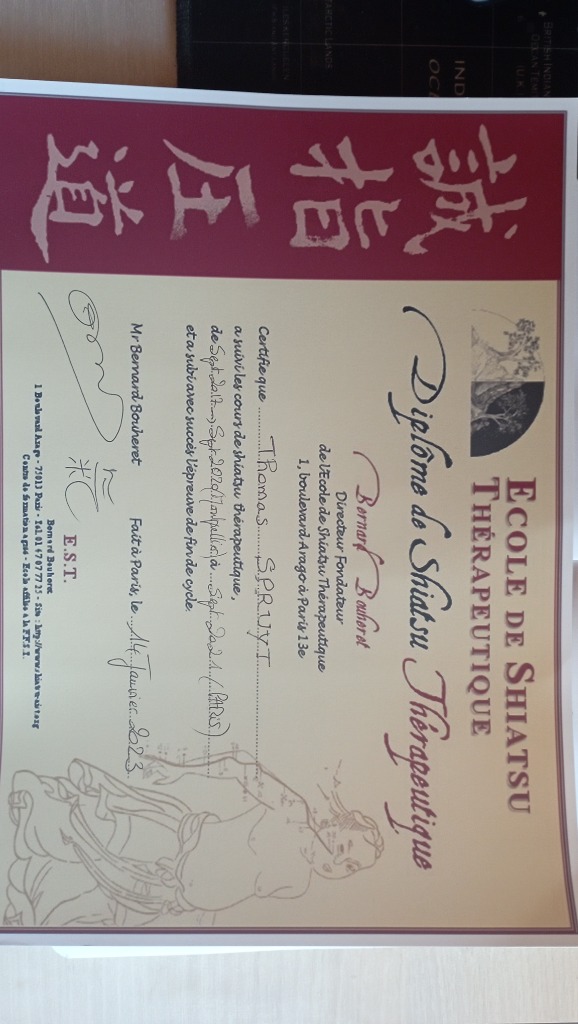 誠指圧道
ECOLE DE SHIATSU
THÉRAPEUTIQUE
Diplôme de Shiatsu Thérapeutique
Bernard Bouheret
Directeur Fondateur
de l'école de Shiatsu Thérapeutique
1, boulevard Arago à Paris 13e
Certifie que Thomas SPRUYT
a suivi les cours de shiatsu thérapeutique,
de Sept 2017 à Sept 2020 (Montpellier) à Sept 2021 (PARIS)
et a subi avec succès l'épreuve de fin de cycle.
Mr Bernard Bouheret Fait à Paris, le 14 Janvier 2023
E.S.T.
Bernard Bouheret
1 Boulevard Arago - 75013 Paris - Tél. 01 47 07 77 25 - Site :
Centre de formation agréé - Ecole affiliée à la F.F.S.T.
BRITISH INDIAN
OCEAN TERR
(U.K.)
IND
OC
ARCTIC LANDS